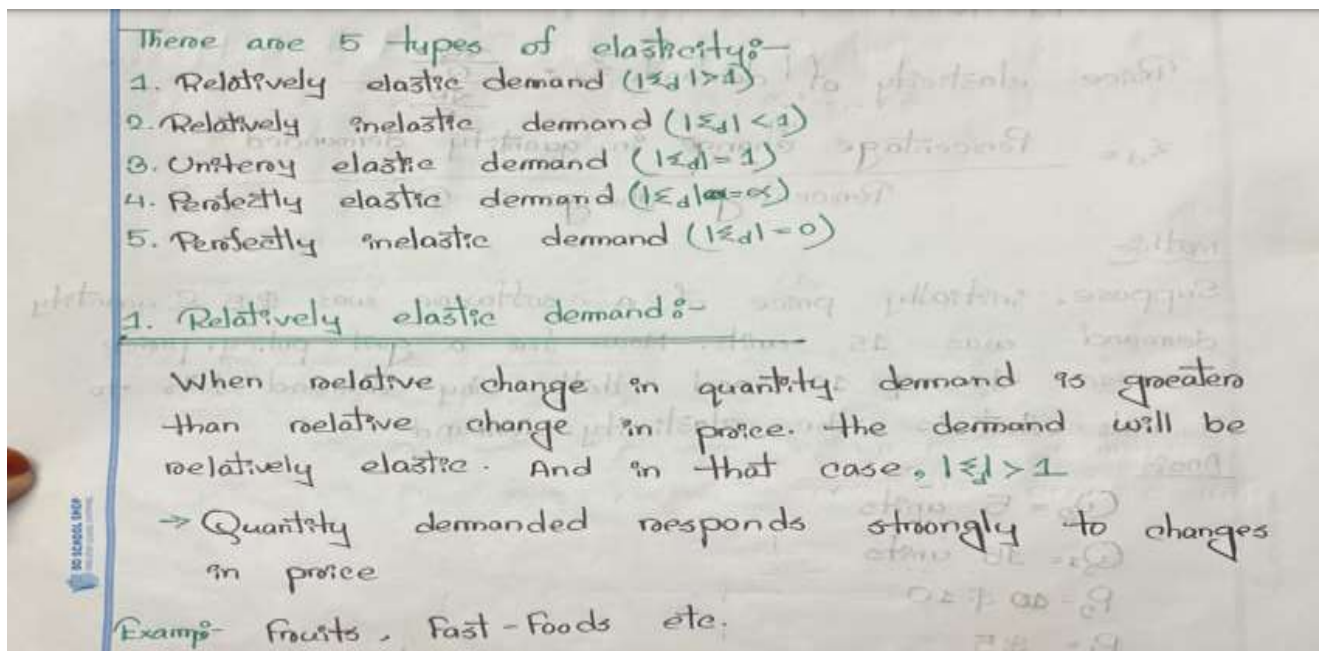 There are 5 types of elasticity:-
1. Relatively elastic demand (|Ɛd|>1)
2. Relatively inelastic demand (|Ɛd|<1)
3. Uniteray elastic demand (|Ɛd|=1)
4. Perfectly elastic demand (|Ɛd|=∝)
5. Perfectly inelastic demand (|Ɛd|=0)
1. Relatively elastic demand:-
When relative change in quantity demand is greater
than relative change in price. the demand will be
relatively elastic. And in that case, |Ɛd|>1
→ Quantity demanded responds strongly to changes
in price
Examp:- Fruits, Fast-Foods etc.
BD SCHOOL SHOP